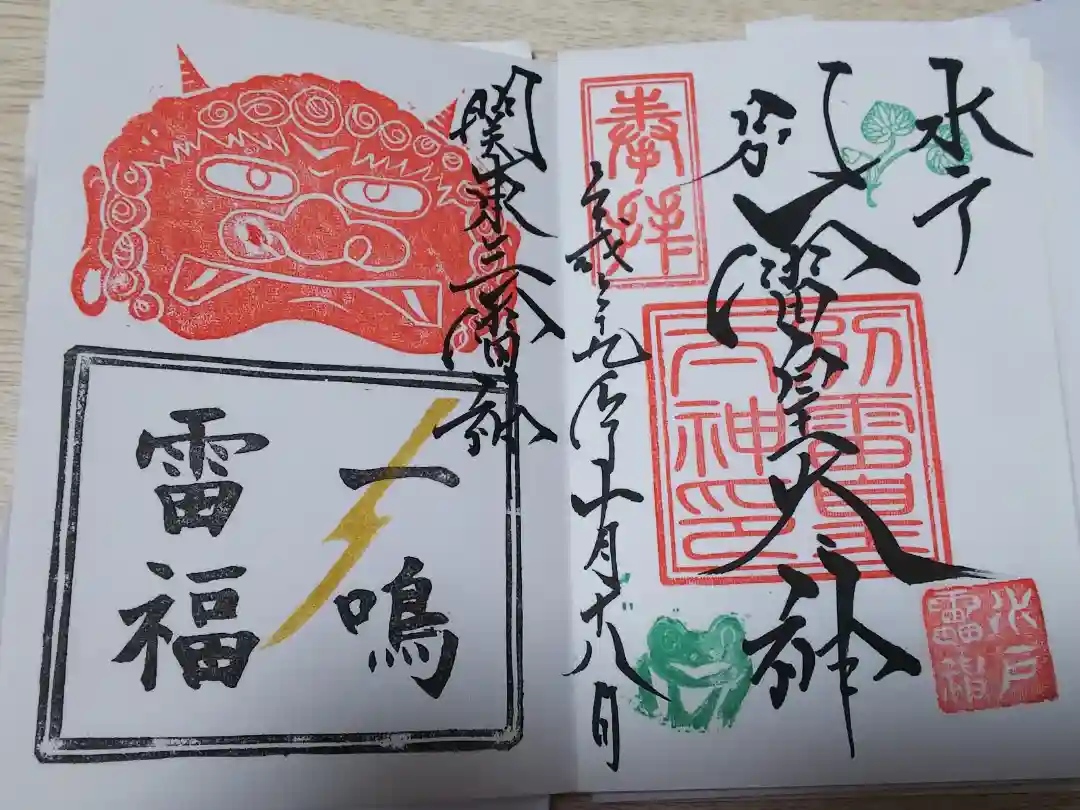 水戸
別雷皇太神
奉拝
平成二十九年十月十八日
別雷皇
太神印
水戸
関東三雷神
一鳴
雷福